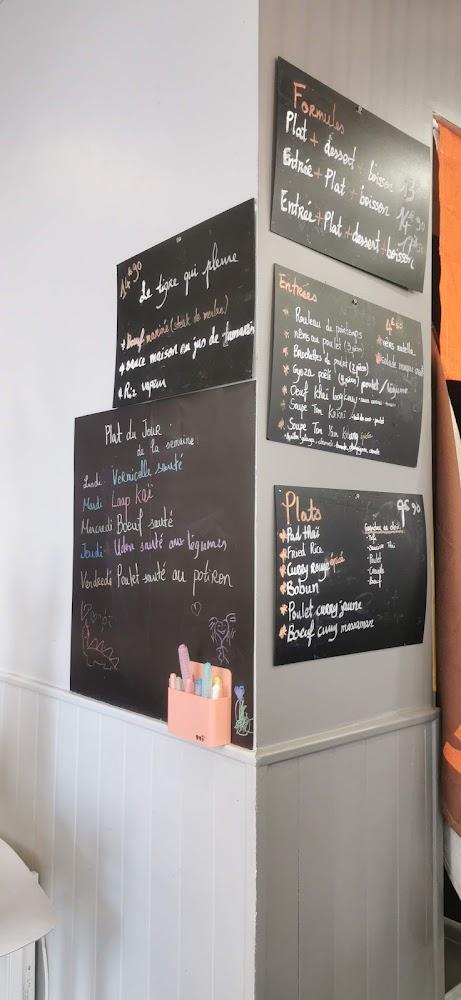 14€90
Le tigre qui pleure
* Boeuf mariné (steak de
* sauce maison au jus de tamarin
* Riz vapeur
Plat du Jour
de la semaine
Lundi Vermicelle sauté
Mardi Laap Kaï
Mercredi Boeuf sauté
Jeudi Udon sauté aux légumes
Vendredi Poulet sauté au potiron
Formules
Plat + dessert + boisson 13
Entrée + Plat + boisson 14€90
Entrée + Plat + dessert + boisson 17€
Entrées
* Rouleau de printemps
* nems au poulet
* Brochettes de poulet
* Gyoza poêlé poulet / légume
* Oeuf Khaï
* Soupe Tom Kakaï
* Soupe Tom Yam Khung
4€
* nems nutella
* salade mangue
Plats
9€90
* Pad thaï
* Fried Rice
* Curry rouge épicé
* Bobun
* Poulet curry jaune
* Boeuf curry massaman
Garniture au choix
- Tofu
- saucisse Thaï
- Poulet
- Crevette
- boeuf